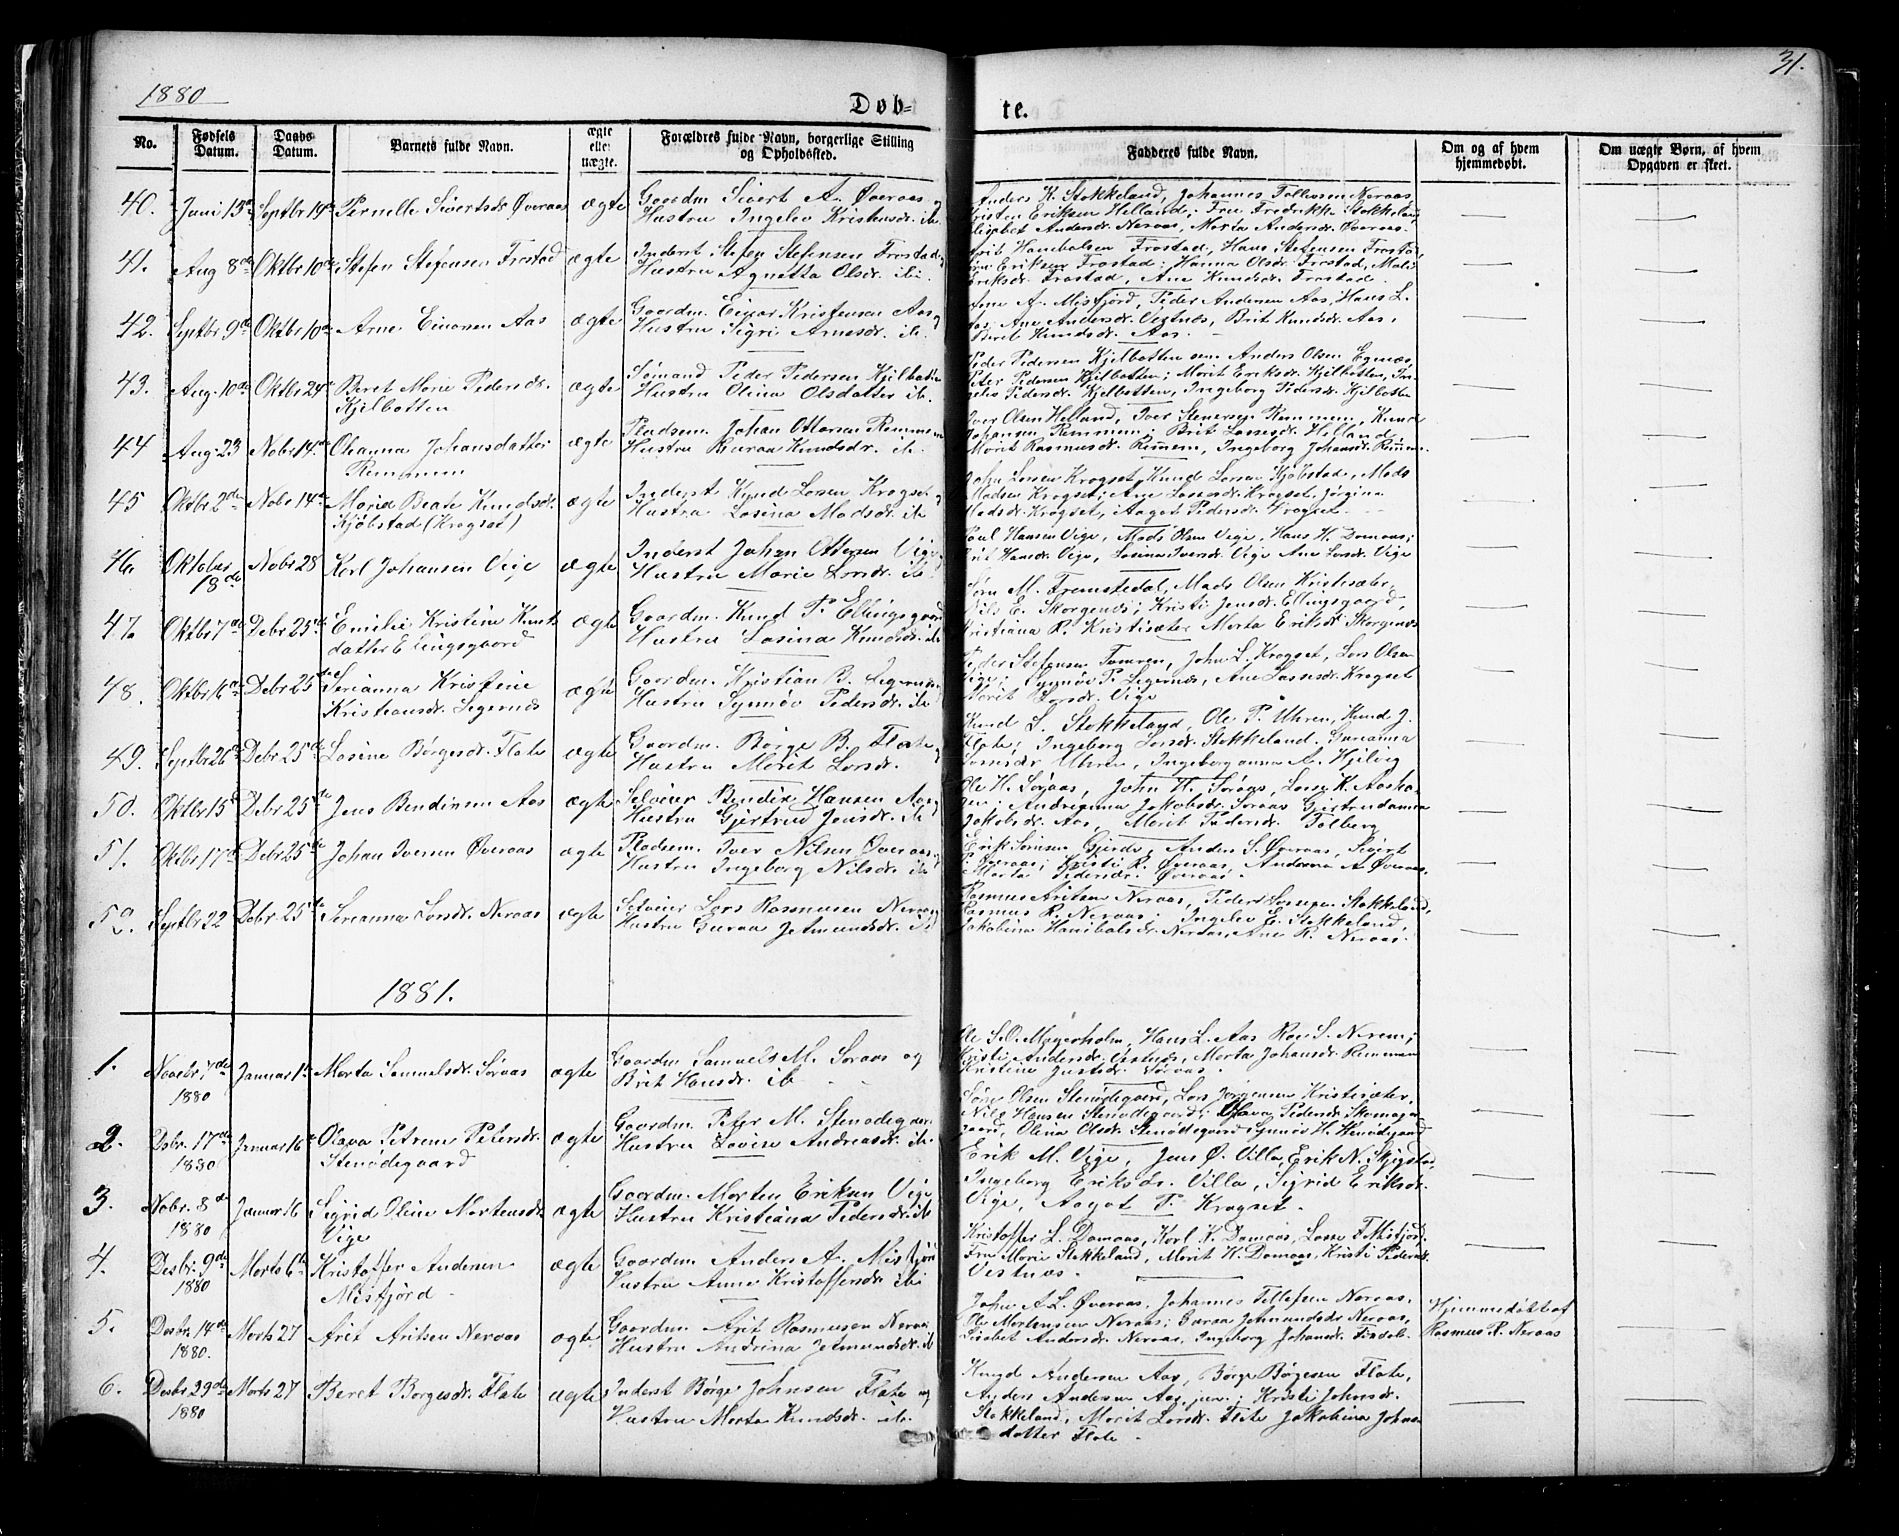 1880
31.
Døb-
te.
No.
Fødsels Datum.
Daabs Datum.
Barnets fulde Navn.
ægte eller uægte.
Forældres fulde Navn, borgerlige Stilling og Opholdssted.
Fadderes fulde Navn.
Om og af hvem hjemmedøbt.
Om uægte Børn, af hvem Opgaven er skeet.
40. Juni 13de Septbr 19de Pernelle Sivertsdr Øveraas ægte Gaardm Sivert A. Øveraas og
Hustru Ingelev Kristensdr. ib.
Anders K. Stokkeland, Johannes Tollevsen Neraas,
Kristen Eriksen Helland; Fru Fredrikke Stokkeland,
Lisabet Andersdr. Neraas, Marta Andersdr. Øveraas.
41. Aug 8de Oktbr 10de Stefen Stefensen Frostad ægte Inderst Stefen Stefensen Frostad og
Hustru Agnetta Olsdr. ibi.
Hanibalsen Frostad, Hans Stefensen Frostad,
Eriksen Frostad; Hanna Olsdr. Frostad, Mali
Eriksdr. Frostad, Ane Knudsdr. Frostad.
42. Septbr 9de Oktbr 10de Arne Einarsen Aas ægte Gaardm. Einar Kristensen Aas og
Hustru Sigri Arnesdr. ib.
Arne A. Misfjord, Peder Andersen Aas, Hans L.
Aas, Ane Andersdr. Vestnes, Brit Knudsdr. Aas,
Berit Knudsdr. Aas.
43. Aug. 10de Oktbr 24de Beret Marie Pedersdr. ægte Sømand Peder Pedersen Kjelbotten
Kjelbotten
Hustru Olina Olsdatter ib.
Peder Pedersen Kjelbotten sen. Anders Olsen Egenæs,
Peter Pedersen Kjelbotten; Marit Eriksdr. Kjelbotten, In-
gelev Pedersdr. Kjelbotten, Ingeborg Pedersdr. Kjelbotten
44 Aug. 23 Nobr. 14de Oleanna Johansdatter ægte Pladsem. Johan Ottersen Remmem
Remmem
Hustru Guraa Knudsdr. ib.
Iver Olsen Helland, Iver Stenersen Remmem, Knud
Johansen Remmem; Brit Lassesdr. Helland,
Marit Rasmusdr. Remmem, Ingeborg Johansdr. Remmem.
45 Oktbr 2den Nobr 14de Marie Beate Knudsdr. ægte Inderst Knud Larsen Krogset og
Kjøbstad (Krogset)
Hustru Lasina Madsdr. ib
John Larsen Krogset, Knud Larsen Kjøbstad, Mads
Madsen Krogset; Ane Lassesdr. Krogset, Jørgina
Madsdr. Krogset, Aagot Pedersdr. Krogset.
46. Oktober 18de Nobr 28 Karl Johansen Vige ægte Inderst Johan Ottersen Vige
Hustru Marie Larsdr. ib.
Poul Hansen Vige, Mads Olsen Vige, Hans H. Damaas;
Brit Hansdr. Vige, Lasina Iversdr. Vige Ane Larsdr. Vige
47. Oktbr 7de Debr 25de Emilie Kristine Knuts- ægte Gaardm. Knud P. Ellingsgaard
datter Ellingsgaard
Hustru Lasina Knudsdr. ib
Jørn M. Fremstedal, Mads Olsen Kristisæter,
Nils E. Skorgenes; Kristi Jensdr. Ellingsgaard,
Kristiana R. Kristisæter Marta Eriksdr. Skorgenes
48. Oktbr 16de Debr 25de Serianna Kristine ægte Gaardm. Kristian B. Segernes
Kristiansdr. Segernes
Hustru Synnøv Pedersdr. ib
Peder Stefensen Tomren, John L. Krogset, Lars Olsen
Vige; Synnøv P. Segernes, Ane Lassesdr. Krogset
Marit Larsdr. Vige
49. Septbr 26de Debr 25de Lasine Børgesdr. Flate ægte Gaardm. Børge B. Flate og
Hustru Marit Larsdr.
Knud L. Stokkeland, Ole P. Uhren, Knud J.
Flate; Ingeborg Larsdr. Stokkeland. Gurianna
Uhren, Ingeborganna A. Hjelvig
50. Oktbr 15de Debr 25de Jens Bendixsen Aas ægte Selveier Bendix Hansen Aas og
Hustru Gjertrud Jensdr. ib
Ole H. Søraas, John H. Søraas, Lasse K. Aasha-
gen; Andreanna Jakobsdr. Søraas Gjertrudanna
Jakobsdr. Aas, Marit Pedersdr. Tolberg
51. Oktbr 17de Debr 25de Johan Iversen Øveraas ægte Pladsem. Iver Nilsen Øveraas og
Hustru Ingeborg Nilsdr. ib
Erik Gjerde, Anders S. Øveraas, Sivert
P. Øveraas; Kristi R. Øveraas, Anderea A. Øveraas,
Marta Pedersdr. Øveraas.
52. Septbr 22 Debr 25de Serianna Larsdr. Neraas ægte Selveier Lars Rasmusen Neraas og
Hustru Guraa Jetmundsdr. ib
Rasmus Aritsen Neraas, Peder Larsen Stokkeland,
Rasmus R. Neraas; Ingelev E. Stokkeland,
Jakobina Hanibalsdr. Neraas, Ane R. Neraas.
1881.
1. Novebr. 7de 1880 Januar 1ste Marta Samuelsdr. Søraas ægte Gaardm Samuels M. Søraas og
Brit Hansdr. ib
Ole S.O. Magerholm, Hans L. Aas Roe S. Nerem;
Kristi Andersdr. Vestnæs, Marta Johansdr. Remmem
Kristine Justsdr. Søraas.
2. Dsbr. 17de 1880 Januar 16 Olava Petrine Petersdr. ægte Gaardm. Peter M. Stenødegaar
Stenødegaard
Hustru Lovise Andreasdr. ib.
Søren Olsen Stenødegaard, Lars Jørgensen Kristisæter,
Nils Hansen Stenødegaard; Olava Pedersdr. Skeinaja-
gaard, Olina Olsdr. Stenødegaard Synnøv H. Stenødegaard
3. Nobr. 8de 1880 Januar 16 Sigrid Oline Mortensdr. ægte Gaardm. Morten Eriksen Vige
Vige
Hustru Kristiana Pedersdr. ib
Erik M. Vige, Jens Ø. Villa, Erik N. Skjegstad,
Ingeborg Eriksdr. Villa, Sigrid Eriksdr.
Vige, Aagot P. Krogset.
4. Desbr. 9de 1880 Marts 6te Kristoffer Andersen ægte Gaardm Anders A. Misfjord
Misfjord
Hustru Anne Kristoffersdr. ib
Kristoffer L. Damaas, Karl K. Damaas, Lasse Misfjord,
Fru Marie Stokkeland, Marit K. Damaas, Kristi Pedersdr.
Vestnæs.
5. Desbr. 14de 1880. Marts 27 Arit Aritsen Neraas ægte Gaardm. Arit Rasmusen Neraas
Hustru Andrina Jetmundsdr. ib
John A.L. Øveraas, Johannes Tollefsen Neraas,
Ole Mortensen Neraas; Guraa Jetmundsdr. Neraas,
Lisabet Andersdr. Neraas, Ingeborg Johansdr. Findal.
Hjemmedøbt af
Rasmus R. Neraas
6. Desbr. 29de 1880 Marts 27 Beret Børgesdr. Flate ægte Inderst Børge Johnsen Flate og
Hustru Marta Knudsdr. ib.
Knud Andersen Aas, Børge Børgesen Flate,
Anders Andersen Aas, jun; Kristi Johnsdr.
Stokkeland, Marit Larsdr. Flate Jakobina Johns-
datter Flate.